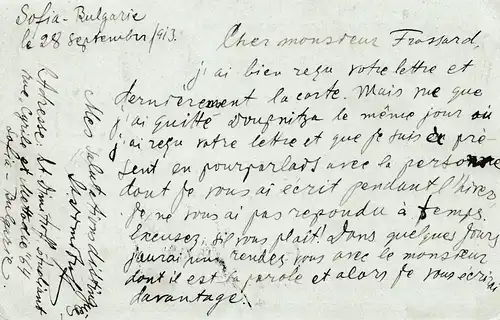 Sofia-Bulgarie
le 28 septembre/913.
Cher monsieur Frossard,
j'ai bien reçu votre lettre et
dernièrement la carte. Mais vue que
j'ai quitté Doupnitza le même jour où
j'ai reçu votre lettre et que je suis à pré-
sent en pourparlads avec la personne
dont je vous ai écrit pendant l'hiver
je ne vous ai pas repondu à temps.
Excusez, s'il vous plait! Dans quelques jours
j'aurai une rendez vous avec le monsieur
dont il est la parole et alors je vous écrirai
davantage.
Mes salutations
L'Adresse: St. Dimitroff, étudiant
rue Cyrile et Methodie 64
Sofia-Bulgarie.